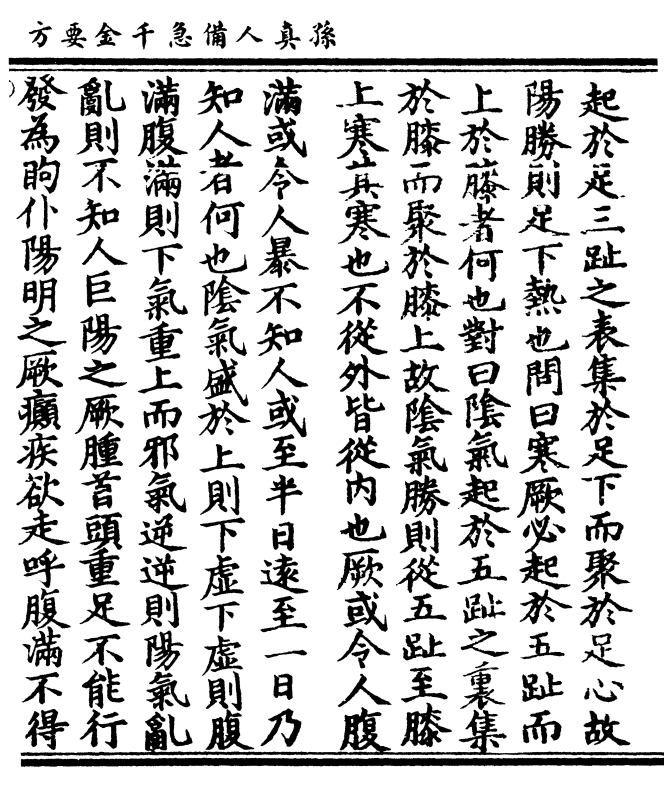 孫真人備急千金要方
起於足三趾之表集於足下而聚於足心故
陽勝則足下熱也問曰寒厥必起於五趾而
上於膝者何也對曰陰氣起於五趾之裏集
於膝而聚於膝上故陰氣勝則從五趾至膝
上寒其寒也不從外皆從內也厥或令人腹
滿或令人暴不知人或至半日遠至一日乃
知人者何也陰氣盛於上則下虛下虛則腹
滿腹滿則下氣重上而邪氣逆逆則陽氣亂
亂則不知人巨陽之厥腫首頭重足不能行
發為眴仆陽明之厥癲疾欲走呼腹滿不得